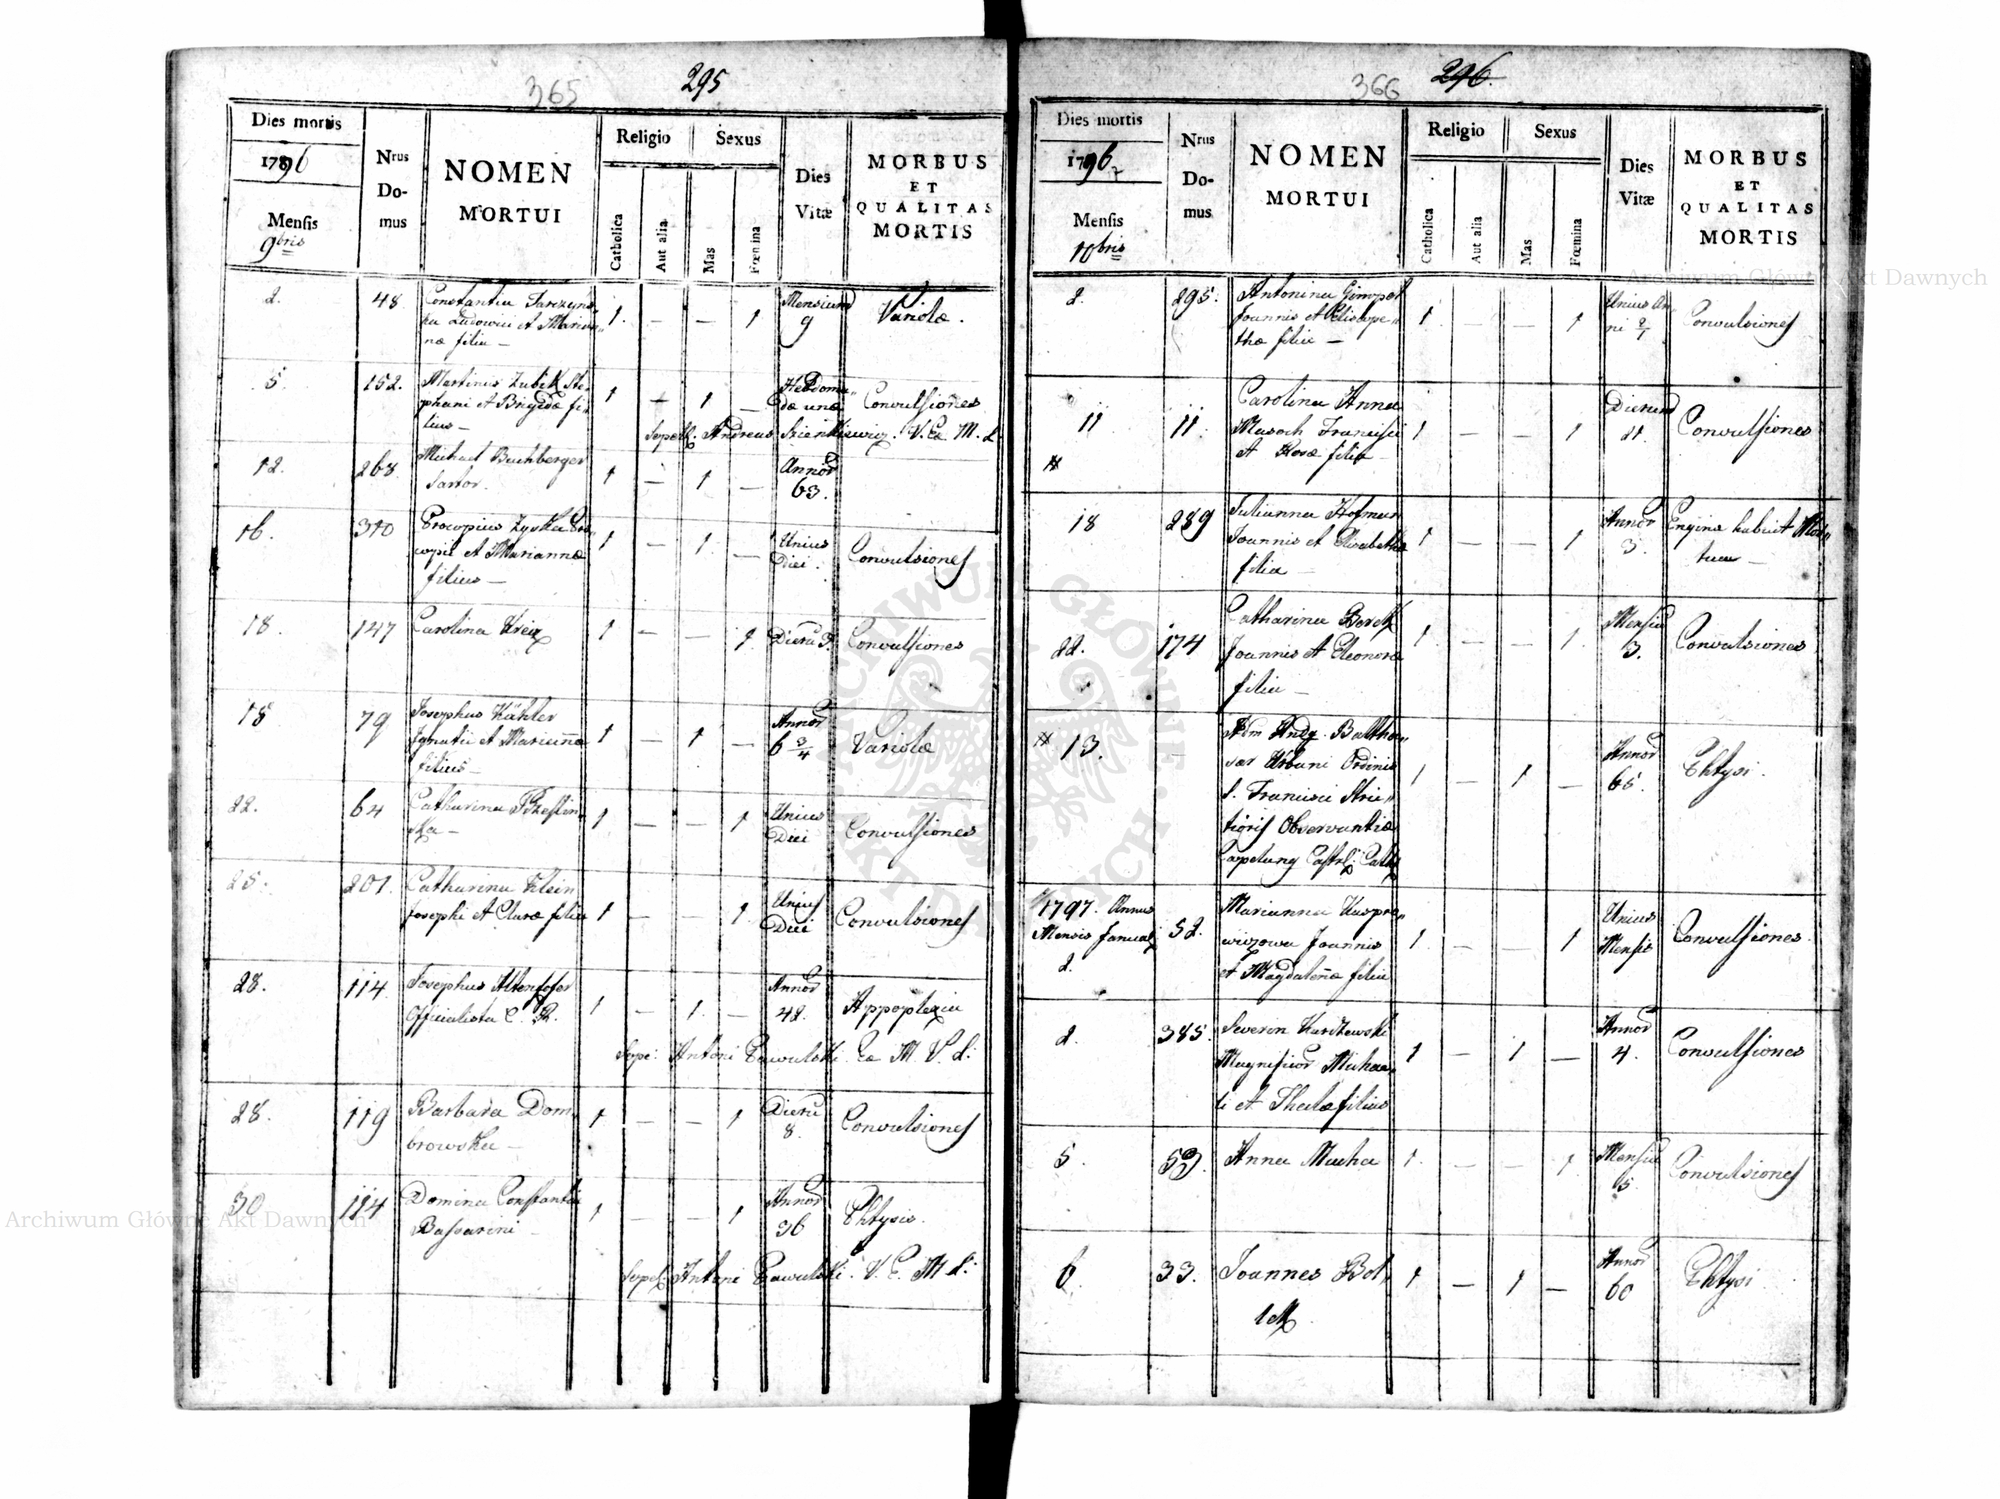 365
295
Dies mortis
1796
Mensis
9bris
Nrus
Do-
mus
NOMEN
MORTUI
Religio
Catholica
Aut alia
Sexus
Mas
Fœmina
Dies
Vitæ
MORBUS
ET
QUALITAS
MORTIS
2.
48
Constantia
Ludovici et Marian„
næ filia —
1. — — 1
Mensium
9
Variolæ.
5.
152.
Martinus Zubik Ste„
phani et Brigidæ fi„
lius —
1 — 1 —
Hebdoma„
dæ unæ
Convulsiones
Sepel. Andreas V. Ex M. d.
12.
268
Michael Buchberger
Sartor.
1 — 1 —
Annor
63.
16.
310
Procopius Zyska Pro„
copii et Mariannæ
filius —
1 — 1. —
Unius
Diei.
Convulsiones
18.
147
Carolina
1 — — 1.
Dieru 3.
Convulsiones
18
79
Josephus Kähler
Ignatii et Mariannæ
filius —
1 — 1 —
Annor
6 3/4
Variolæ
22.
64
Catharina
ska —
1 — — 1
Unius
Diei
Convulsiones
25.
201.
Catharina Klein
Josephi et Claræ filia
1 — — 1.
Unius
Diei
Convulsiones
28.
114
Josephus
Officialista C. R.
1 — 1. —
Annor
42.
Appoplexia
Sepe: Antoni Gawulski Ex M. V. d:
28.
119
Barbara Dom„
browska —
1 — — 1
Dieru
8.
Convulsiones
30
114
Domina Constantia
Bassarini —
1 — — 1
Annor
36
Phtysis.
Sepel. Antoni Gawulski. V. E. M d:
366
296.
Dies mortis
1796
7
Mensis
10bris
Nrus
Do-
mus
NOMEN
MORTUI
Religio
Catholica
Aut alia
Sexus
Mas
Fœmina
Dies
Vitæ
MORBUS
ET
QUALITAS
MORTIS
2.
295.
Antonina
Joannis et Elisabe„
thæ filia —
1 — — 1
Unius An„
ni 2/1
Convulsiones
11
11.
Carolina Anna
Masoch Francisci
et Rosæ filia
1 — — 1
Dierum
21.
Convulsiones
18
289
Julianna Hofman
Joannis et Elisabethæ
filia —
1 — — 1
Annor
3.
Engina habuit Mor„
tuu —
22.
174
Catharina
Joannis et Eleonoræ
filia —
1 — — 1.
Mensiu
3.
Convulsiones
13.
—
Adm Rndq. Baltha„
sar Urbani Ordinis
S. Francisci Stric„
tioris Observantiæ
1 — 1 —
Annor
65.
Phtysi.
1797. Annus
Mensis Januarij
2.
52.
Marianna Kaspro„
wiczowa Joannis
et Magdalenæ filia
1. — — 1
Unius
Mensis
Convulsiones.
2.
385.
Severin Karczewski
Magnificor Michae„
li et Theclæ filius
1 — 1 —
Annor
4.
Convulsiones
5.
53.
Anna Mucha
1. — — 1
Mensiu
5.
Convulsiones
6
33.
Joannes Bol„
1 — 1 —
Annor
60
Phtysi
Archiwum Główne Akt Dawnych
Archiwum Główne Akt Dawnych
ARCHIWUM GŁÓWNE AKT DAWNYCH